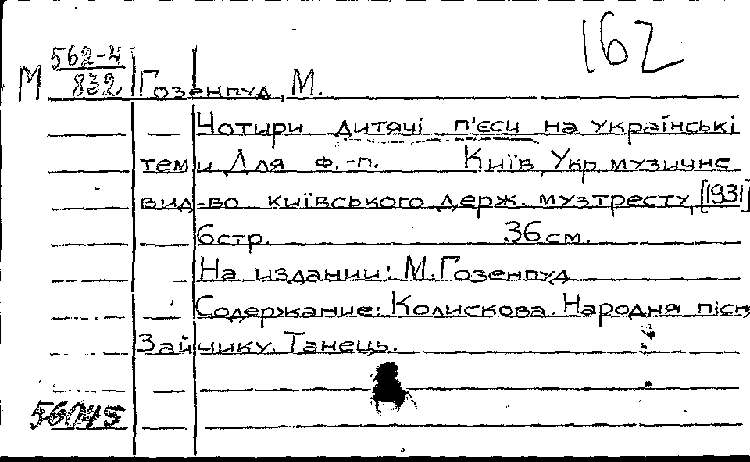 162
М 562-4
832 Гозенпуд, М.
Чотири дитячі п'єси на українські
теми для ф.-п. Київ, Укр. музичне
вид-во київського держ. музтресту, [1931]
6стр. 36см.
На издании: М. Гозенпуд
Содержание: Колискова. Народня пісн
Зайчику. Танець.
56045